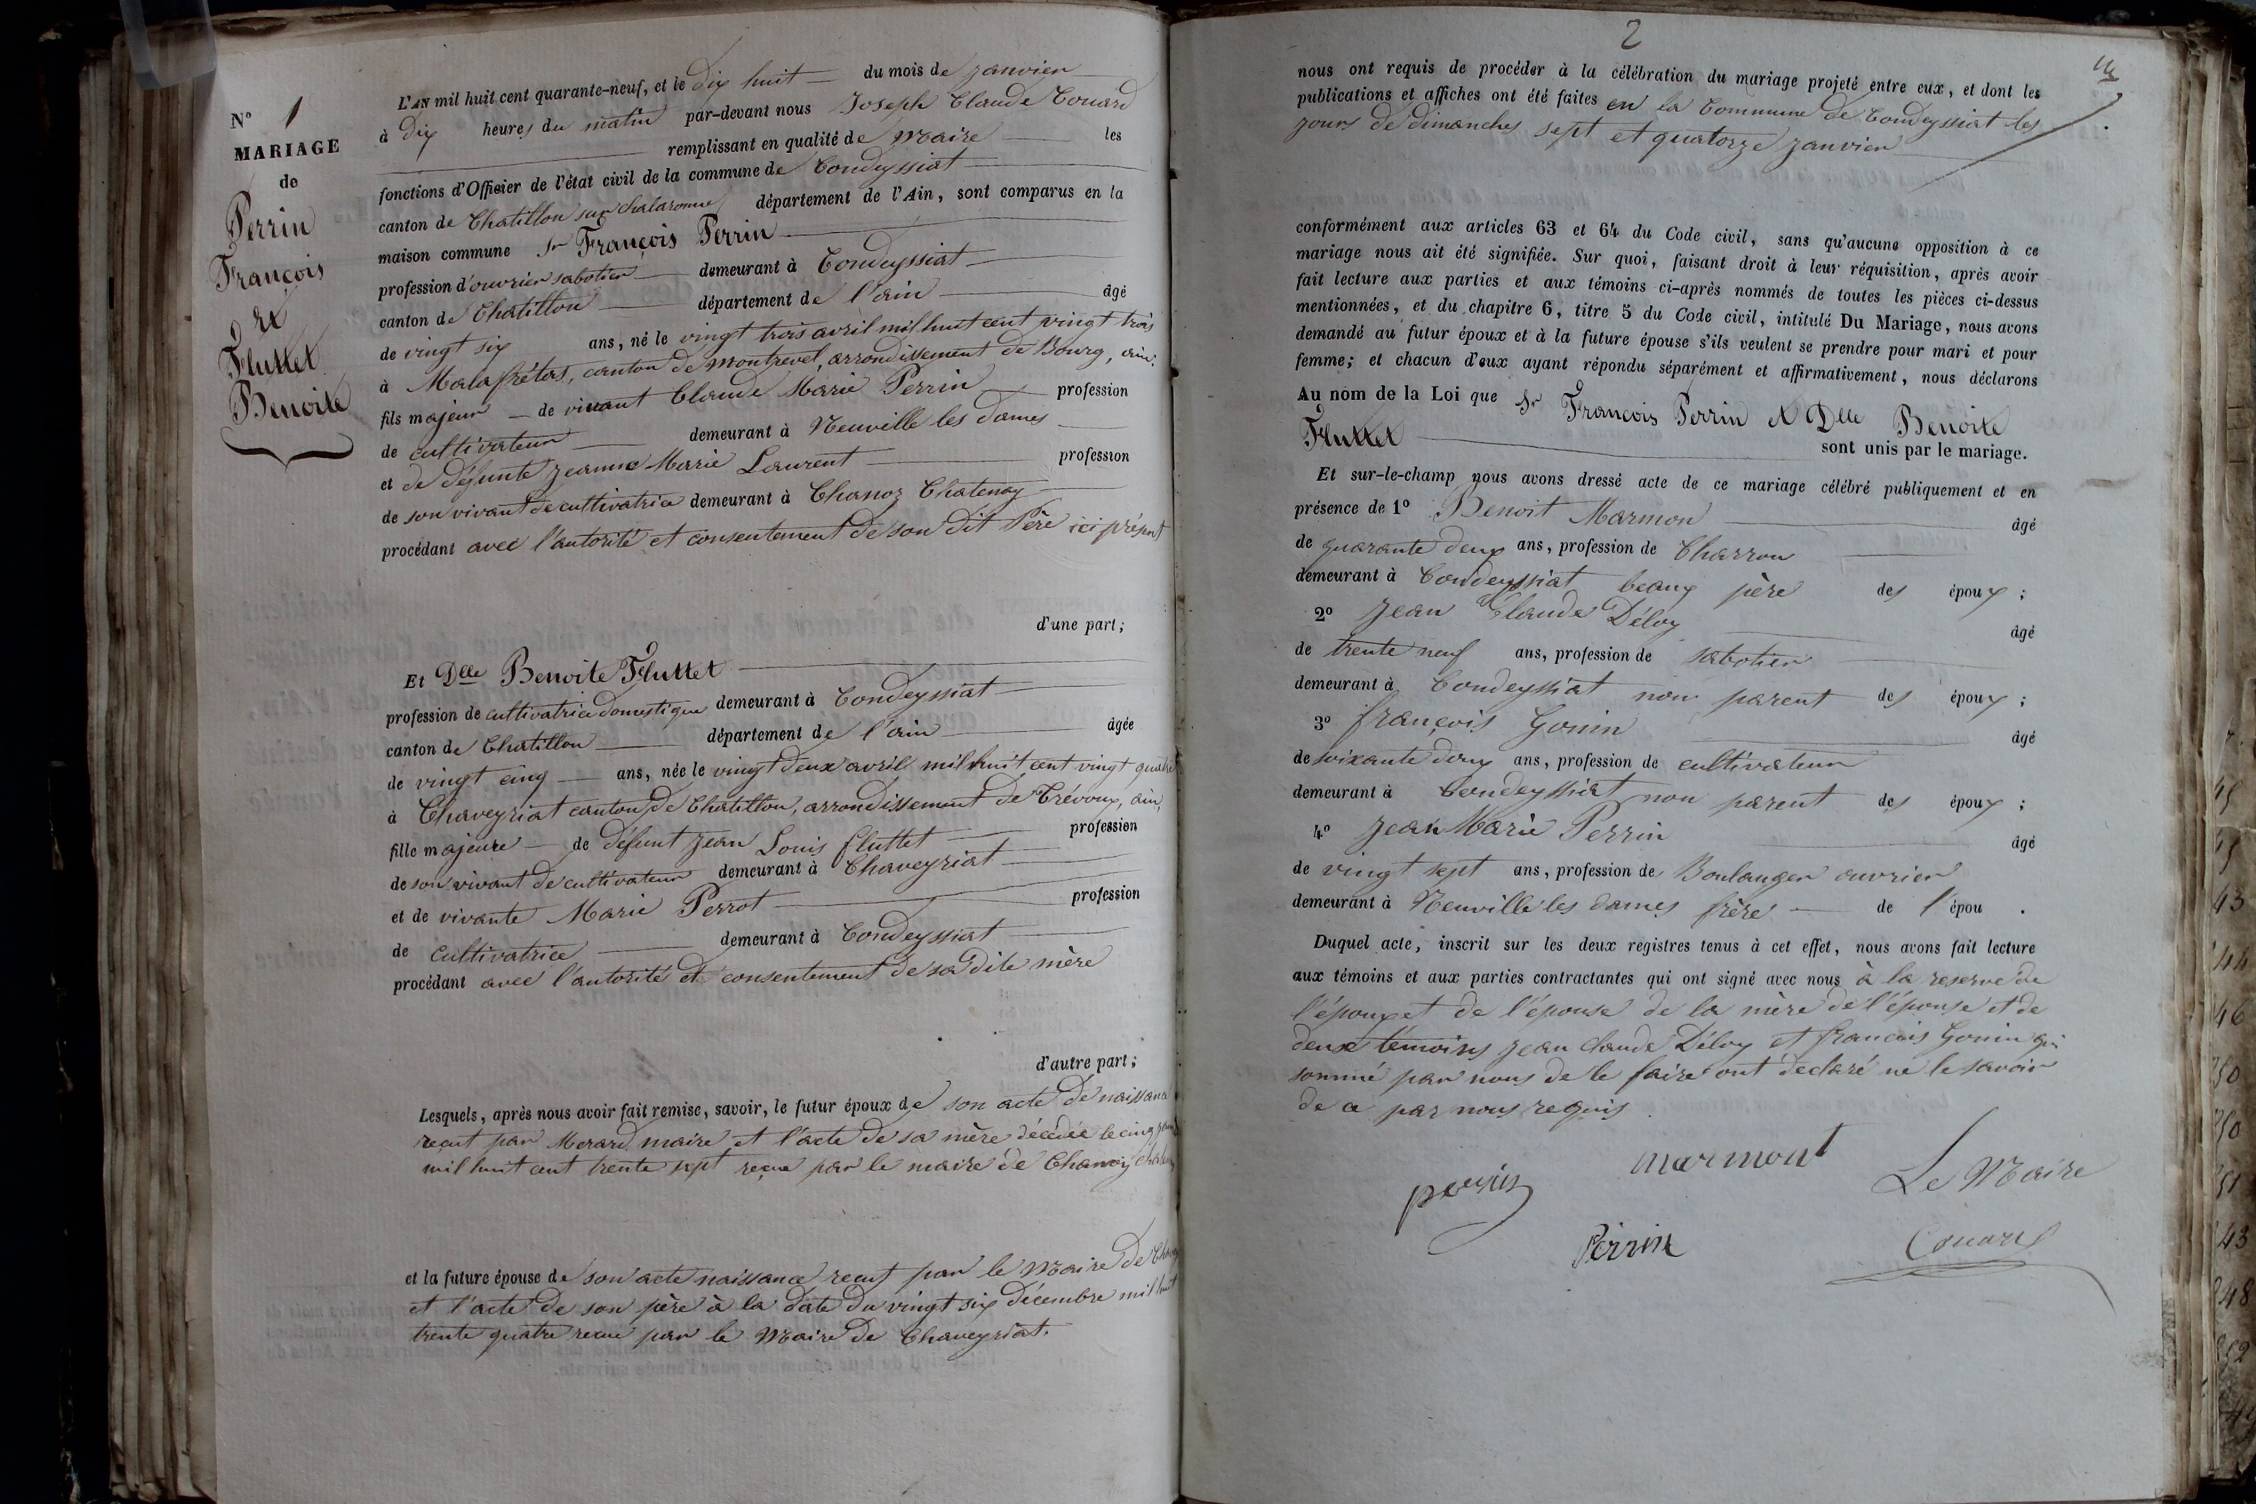 N° 1
MARIAGE
de
Perrin
François
et
Fluttet
Benoite
L'AN mil huit cent quarante-neuf, et le dix huit du mois de janvier
à dix heures du matin par-devant nous Joseph Claude Couard
remplissant en qualité de Maire les
fonctions d'Officier de l'état civil de la commune de Condeyssiat
canton de Chatillon sur chalaronne département de l'Ain, sont comparus en la
maison commune Sr François Perrin
profession d'ouvrier sabotier demeurant à Condeyssiat
canton de Chatillon département de l'ain âgé
de vingt six ans, né le vingt trois avril mil huit cent vingt trois
à Malafrétas, canton de Montrevel, arrondissement de Bourg, ain.
fils majeur de vivant Claude Marie Perrin profession
de cultivateur demeurant à Neuville les dames
et de défunte Jeanne Marie Laurent profession
de son vivant de cultivatrice demeurant à Chanoz Chatenay
procédant avec l'autorité et consentement de son dit Père ici présent
d'une part;
Et Dlle Benoite Fluttet
profession de cultivatrice domestique demeurant à Condeyssiat
canton de Chatillon département de l'ain âgée
de vingt cinq ans, née le vingt deux avril mil huit cent vingt quatre
à Chaveyriat canton de Chatillon, arrondissement de Trévoux, ain,
fille majeure de défunt Jean Louis fluttet profession
de son vivant de cultivateur demeurant à Chaveyriat
et de vivante Marie Perrot profession
de cultivatrice demeurant à Condeyssiat
procédant avec l'autorité et consentement de sa dite mère
d'autre part;
Lesquels, après nous avoir fait remise, savoir, le futur époux de son acte de naissance
reçut par Morard maire et l'acte de sa mère décédée le cinq
mil huit cent trente sept reçue par le maire de Chanoz
et la future épouse de son acte naissance reçut par le Maire de
et l'acte de son père à la date du vingt six décembre mil huit
trente quatre reçue par le Maire de Chaveyriat.
2
nous ont requis de procéder à la célébration du mariage projeté entre eux, et dont les
publications et affiches ont été faites en la Commune de Condeyssiat les
jours de dimanches sept et quatorze janvier
conformément aux articles 63 et 64 du Code civil, sans qu'aucune opposition à ce
mariage nous ait été signifiée. Sur quoi, faisant droit à leur réquisition, après avoir
fait lecture aux parties et aux témoins ci-après nommés de toutes les pièces ci-dessus
mentionnées, et du chapitre 6, titre 5 du Code civil, intitulé Du Mariage, nous avons
demandé au futur époux et à la future épouse s'ils veulent se prendre pour mari et pour
femme; et chacun d'eux ayant répondu séparément et affirmativement, nous déclarons
Au nom de la Loi que Sr François Perrin et Dlle Benoite
Fluttet sont unis par le mariage.
Et sur-le-champ nous avons dressé acte de ce mariage célébré publiquement et en
présence de 1° Benoit Marmon âgé
de quarante deux ans, profession de Charron
demeurant à Condeyssiat beaux père des époux;
2° Jean Claude Déloy âgé
de trente neuf ans, profession de sabotier
demeurant à Condeyssiat non parent des époux;
3° françois Gonin âgé
de soixante douze ans, profession de cultivateur
demeurant à Condeyssiat non parent des époux;
4° Jean Marie Perrin âgé
de vingt sept ans, profession de Boulanger ouvrier
demeurant à Neuville les dames frère de l'épou.
Duquel acte, inscrit sur les deux registres tenus à cet effet, nous avons fait lecture
aux témoins et aux parties contractantes qui ont signé avec nous à la reserve de
l'époux et de l'épouse de la mère de l'épouse et de
deux témoins Jean claude Déloy et françois Gonin qui
sommé par nous de le faire ont déclaré ne le savoir
de ce par nous requis.
marmont
perrin
Le Maire
Perrin
Couard